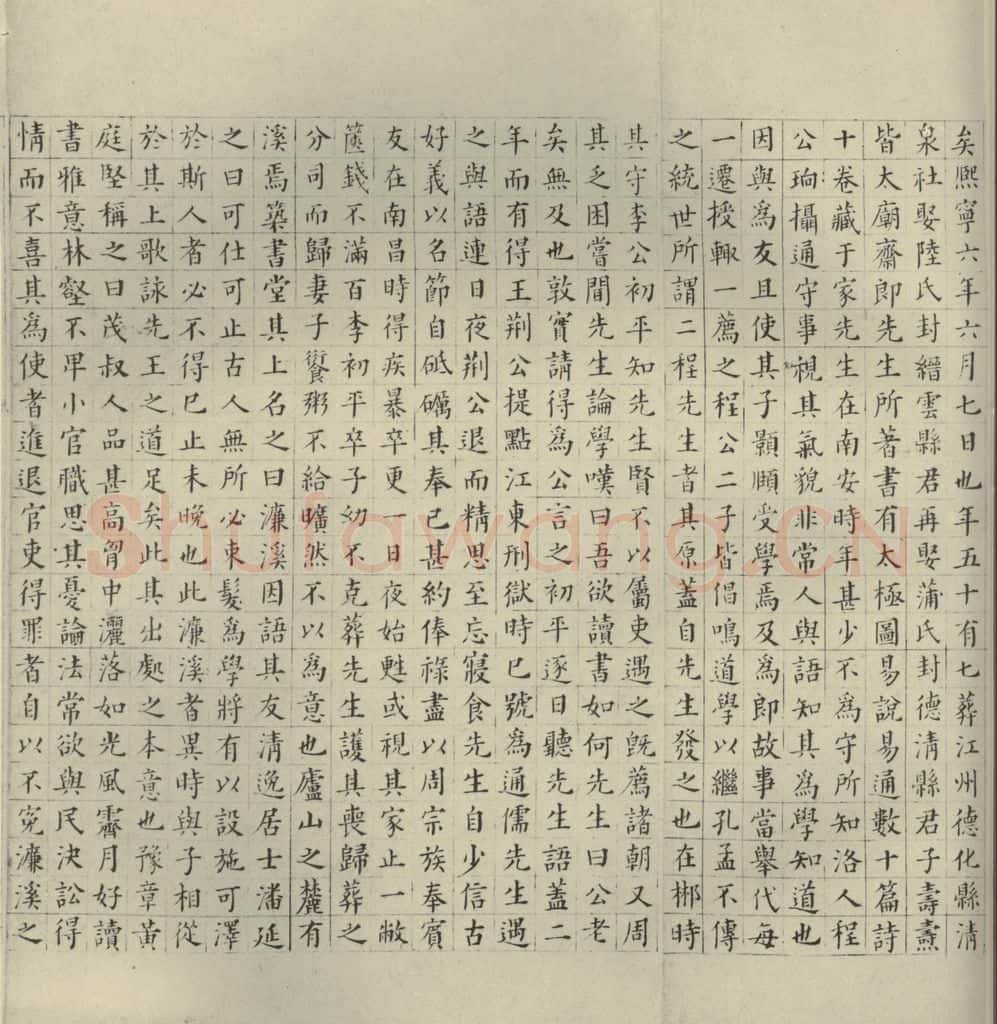 矣熙寧六年六月七日也年五十有七葬江州德化縣清
泉社娶陸氏封縉雲縣君再娶蒲氏封德清縣君子壽燾
皆太廟齋郎先生所著書有太極圖易說易通數十篇詩
十卷藏于家先生在南安時年甚少不為守所知洛人程
公珦攝通守事視其氣貌非常人與語知其為學知道也
因與為友且使其子顥頤受學焉及為郎故事當舉代每
一遷授輒一薦之程公二子皆倡鳴道學以繼孔孟不傳
之統世所謂二程先生者其原蓋自先生發之也在郴時
其守李公初平知先生賢不以屬吏遇之既薦諸朝又周
其乏困嘗聞先生論學嘆曰吾欲讀書如何先生曰公老
矣無及也敦實請得為公言之初平逐日聽先生語蓋二
年而有得王荊公提點江東刑獄時已號為通儒先生遇
之與語連日夜荊公退而精思至忘寢食先生自少信古
好義以名節自砥礪其奉己甚約俸祿盡以周宗族奉賓
友在南昌時得疾暴卒更一日夜始甦或視其家止一敝
篋錢不滿百李初平卒子幼不克葬先生護其喪歸葬之
分司而歸妻子饘粥不給曠然不以為意也廬山之麓有
溪焉築書堂其上名之曰濂溪因語其友清逸居士潘延
之曰可仕可止古人無所必束髮為學將有以設施可澤
於斯人者必不得已止未晚也此濂溪者異時與子相從
於其上歌詠先王之道足矣此其出處之本意也豫章黃
庭堅稱之曰茂叔人品甚高胷中灑落如光風霽月好讀
書雅意林壑不卑小官職思其憂論法常欲與民決訟得
情而不喜其為使者進退官吏得罪者自以不冤濂溪之
Shufawang.CN